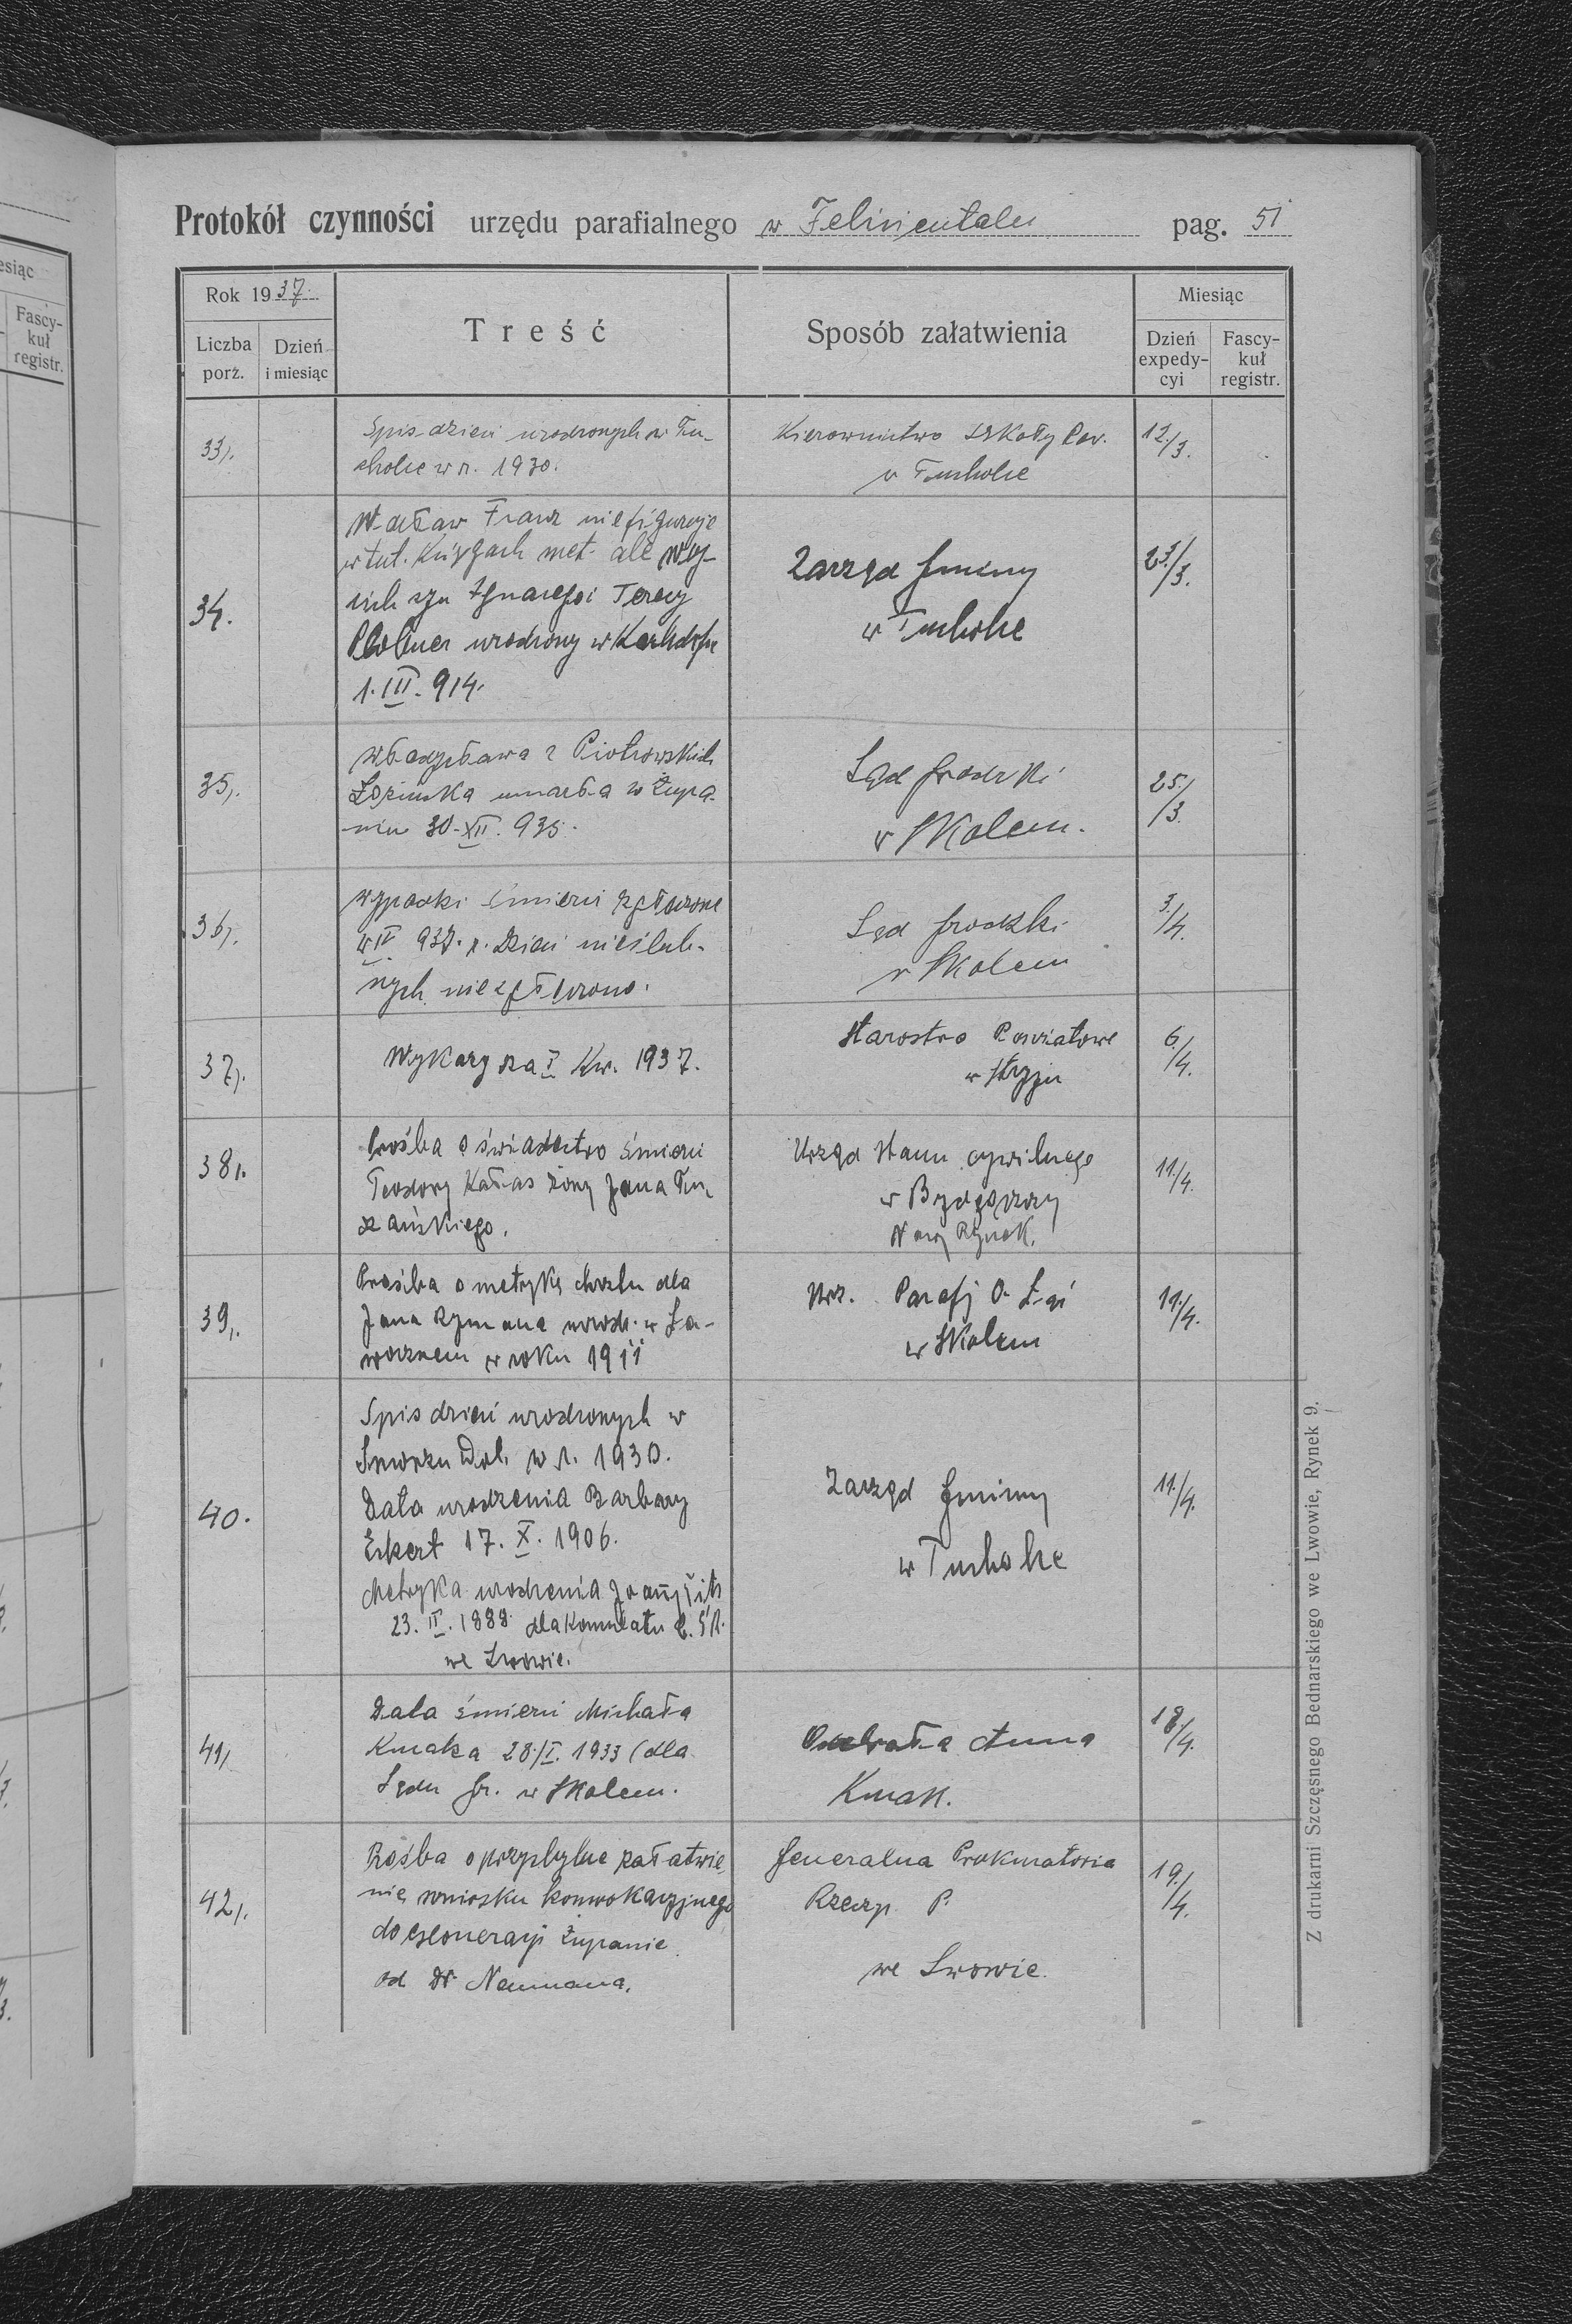 Protokół czynności urzędu parafialnego w Felizientalu pag. 51
Rok 1937.
Miesiąc
Liczba porz.
Dzień i miesiąc
Treść
Sposób załatwienia
Dzień expedycyi
Fascykuł registr.
esiąc
Fascy-
kuł
registr.
33).
Spis dzieci urodzonych w Tu-
cholce w r. 1930.
Kierownictwo Szkoły Pow.
w Tucholce
12/3.
34.
Wacław Franz nie figuruje
w tut. Księgach met. ale
syn Ignacego i Teresy
urodzony w Karlsdorfie
1. III. 914.
Zarząd Gminy
w Tucholce
23/3.
35).
Władysława z Piotrowskich
Łozińska umarła w Żupa-
niu 30. XII. 935.
Sąd Grodzki
w Skolem.
25./3.
36).
Wypadki śmierci zgłoszone
w IV 937. r. Dzieci nieślub-
nych nie zgłoszono.
Sąd Grodzki
w Skolem
3/4.
37).
Wykazy za I Kw. 1937.
Starostwo Powiatowe
w Stryju
6./4.
38).
Prośba o świadectwo śmierci
Teodory Kałas żony Jana Tu-
szańskiego.
Urząd Stanu cywilnego
w Bydgoszczy
Nowy Rynek.
11./4.
39).
Prośba o metrykę chrztu dla
Jana Rymana urodz. w Ła-
wocznem w roku 1911
Urz. Parafj O. Ł-ci
w Skolem
11./4.
40.
Spis dzieci urodzonych w
Smorzu Dol. w r. 1930.
Data urodzenia Barbary
Eckert 17. X. 1906.
Metryka urodzenia
23. II. 1888 dla Konsulatu C. S. R.
we Lwowie.
Zarząd Gminy
w Tucholce
11./4.
41).
Data śmierci Michała
Kmaka 28./I. 1933 (dla
Sądu Gr. w Skolem.
Odebrała Anna
Kmak.
18/4.
42).
Prośba o przychylne załatwie-
nie wniosku konwokacyjnego
do egzoneracji Żupanie
od Dr Neumana.
Generalna Prokuratorja
Rzeczp. P.
we Lwowie.
19./4.
Z drukarni Szczęsnego Bednarskiego we Lwowie, Rynek 9.